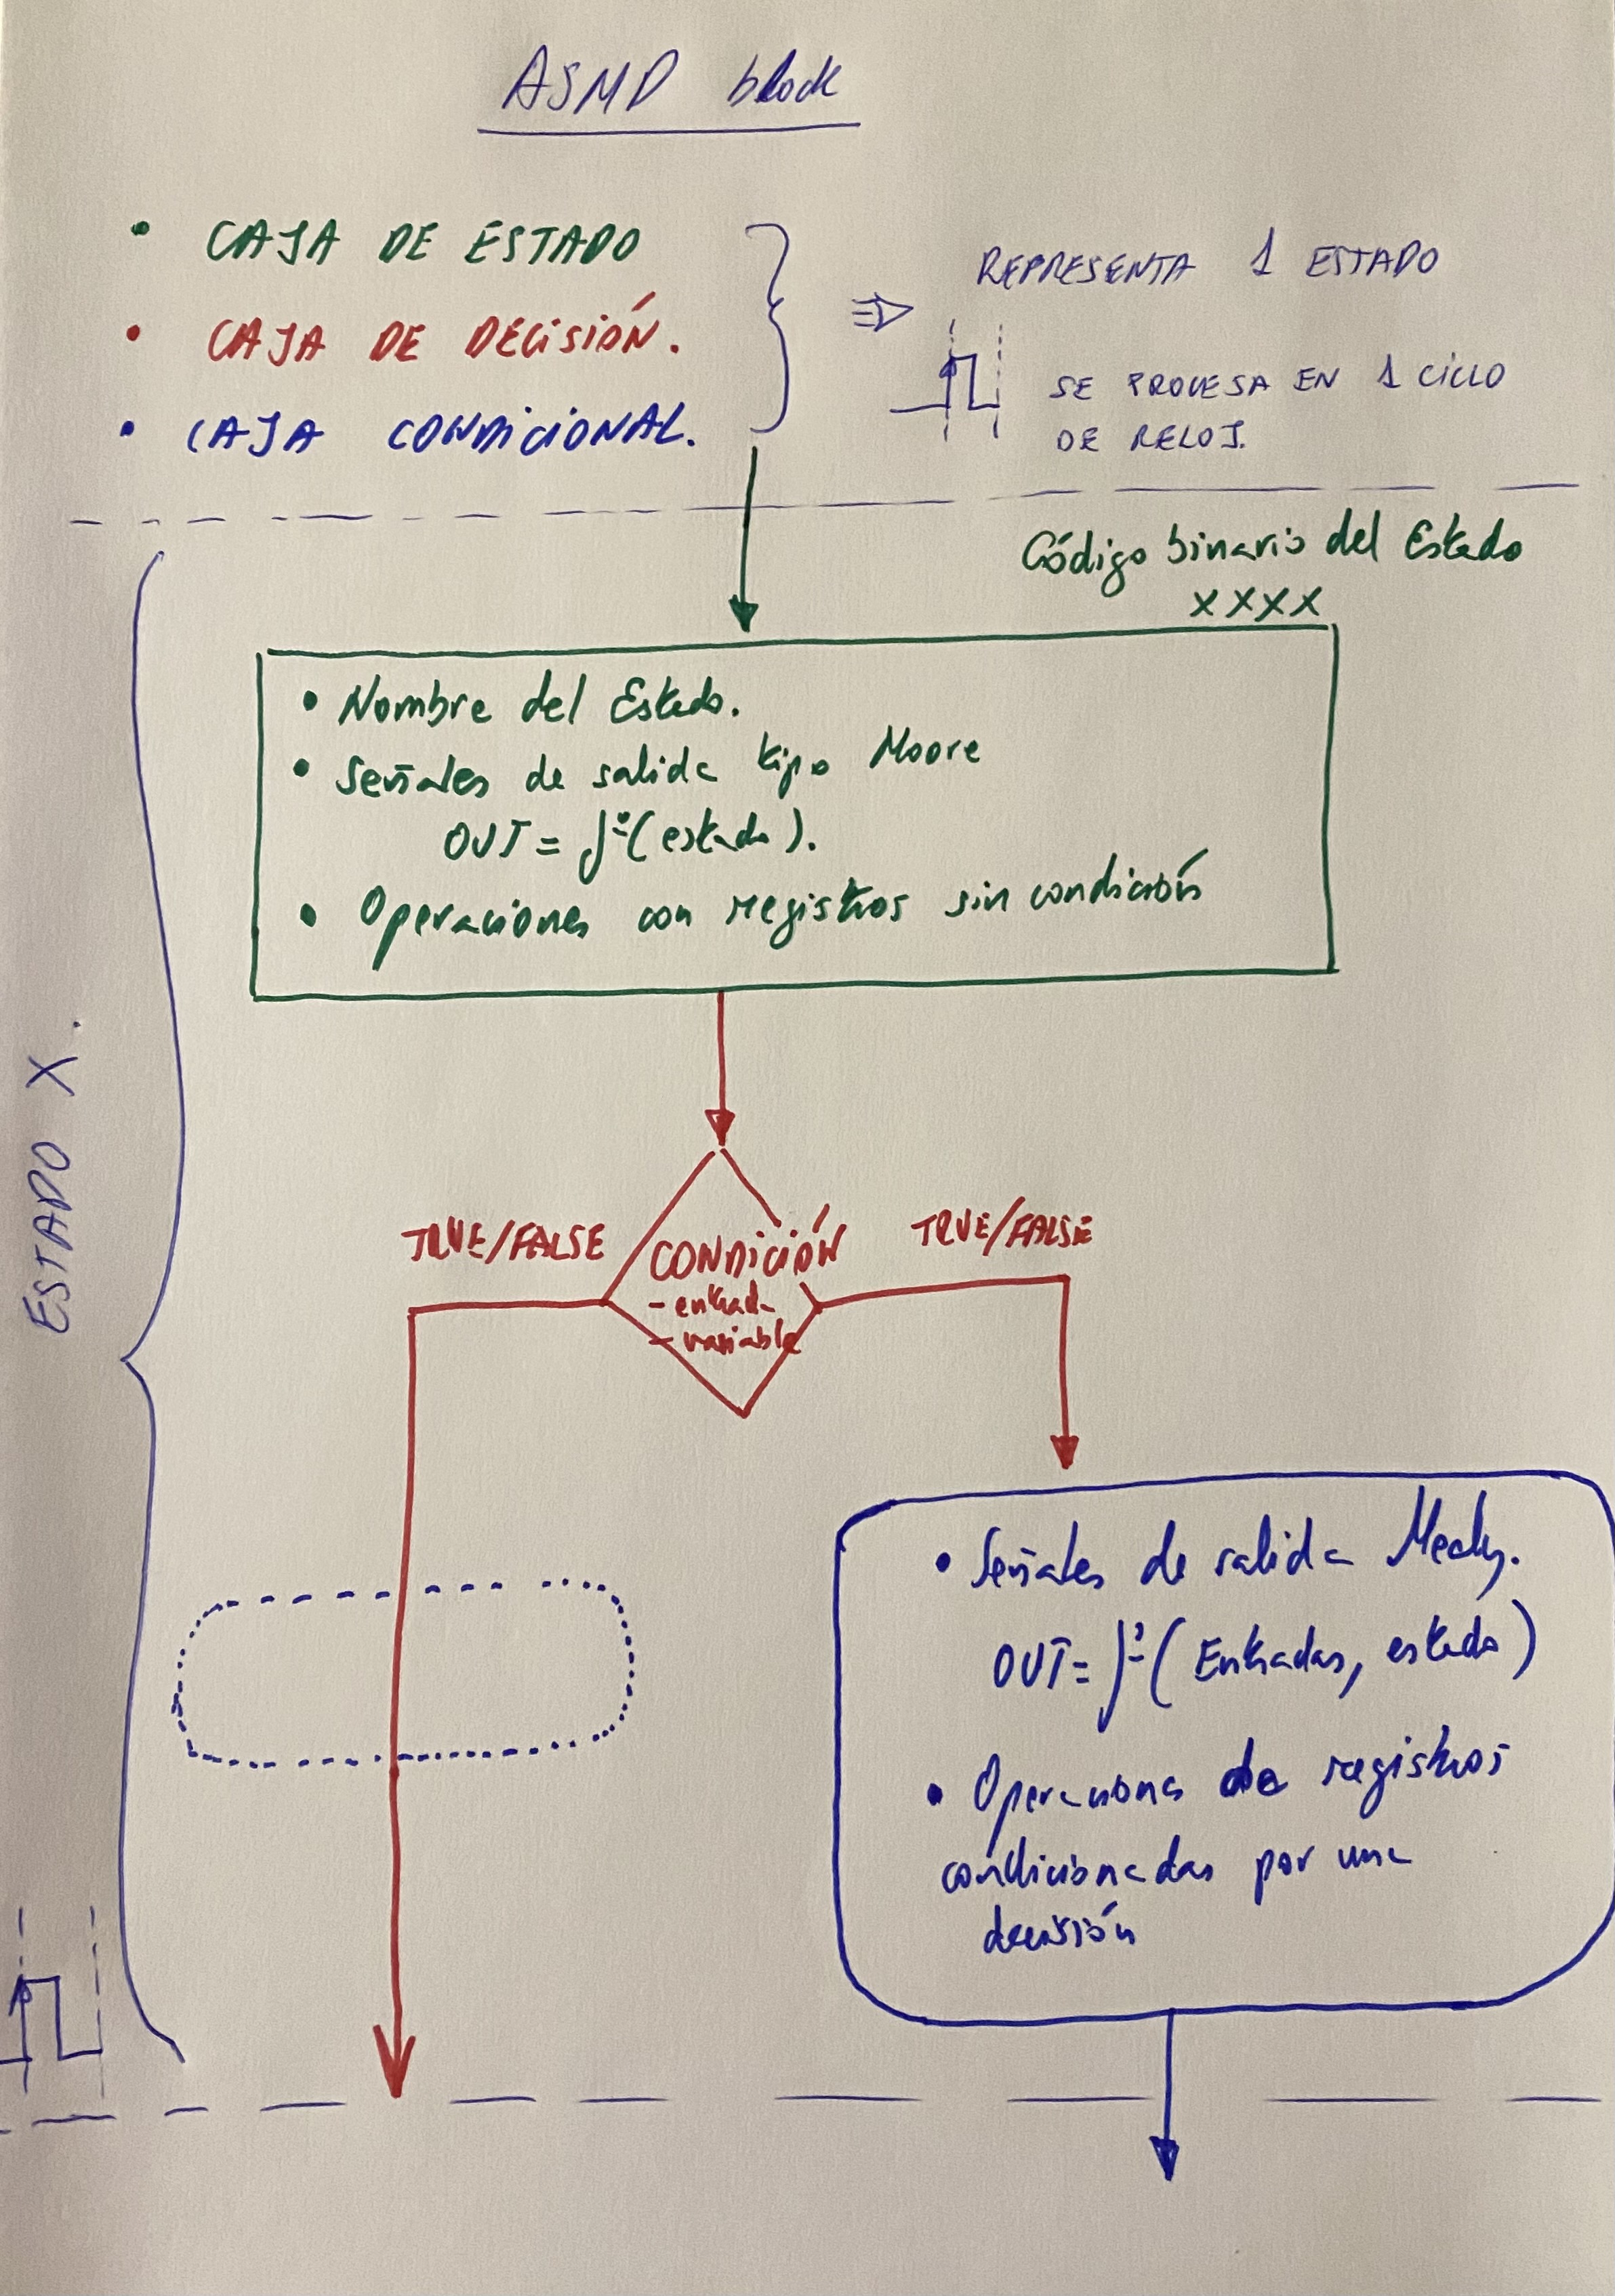 ASMD block
• CAJA DE ESTADO
• CAJA DE DECISIÓN.
• CAJA CONDICIONAL.
⇒ REPRESENTA 1 ESTADO
SE PROCESA EN 1 CICLO
DE RELOJ.
Código binario del Estado
XXXX
• Nombre del Estado.
• Señales de salida tipo Moore
OUT = f(estado).
• Operaciones con registros sin condición
ESTADO X.
TRUE/FALSE
CONDICIÓN
- entrada
- variable
TRUE/FALSE
• Señales de salida Mealy.
OUT = f(Entradas, estado)
• Operaciones de registros
condicionadas por una
decisión